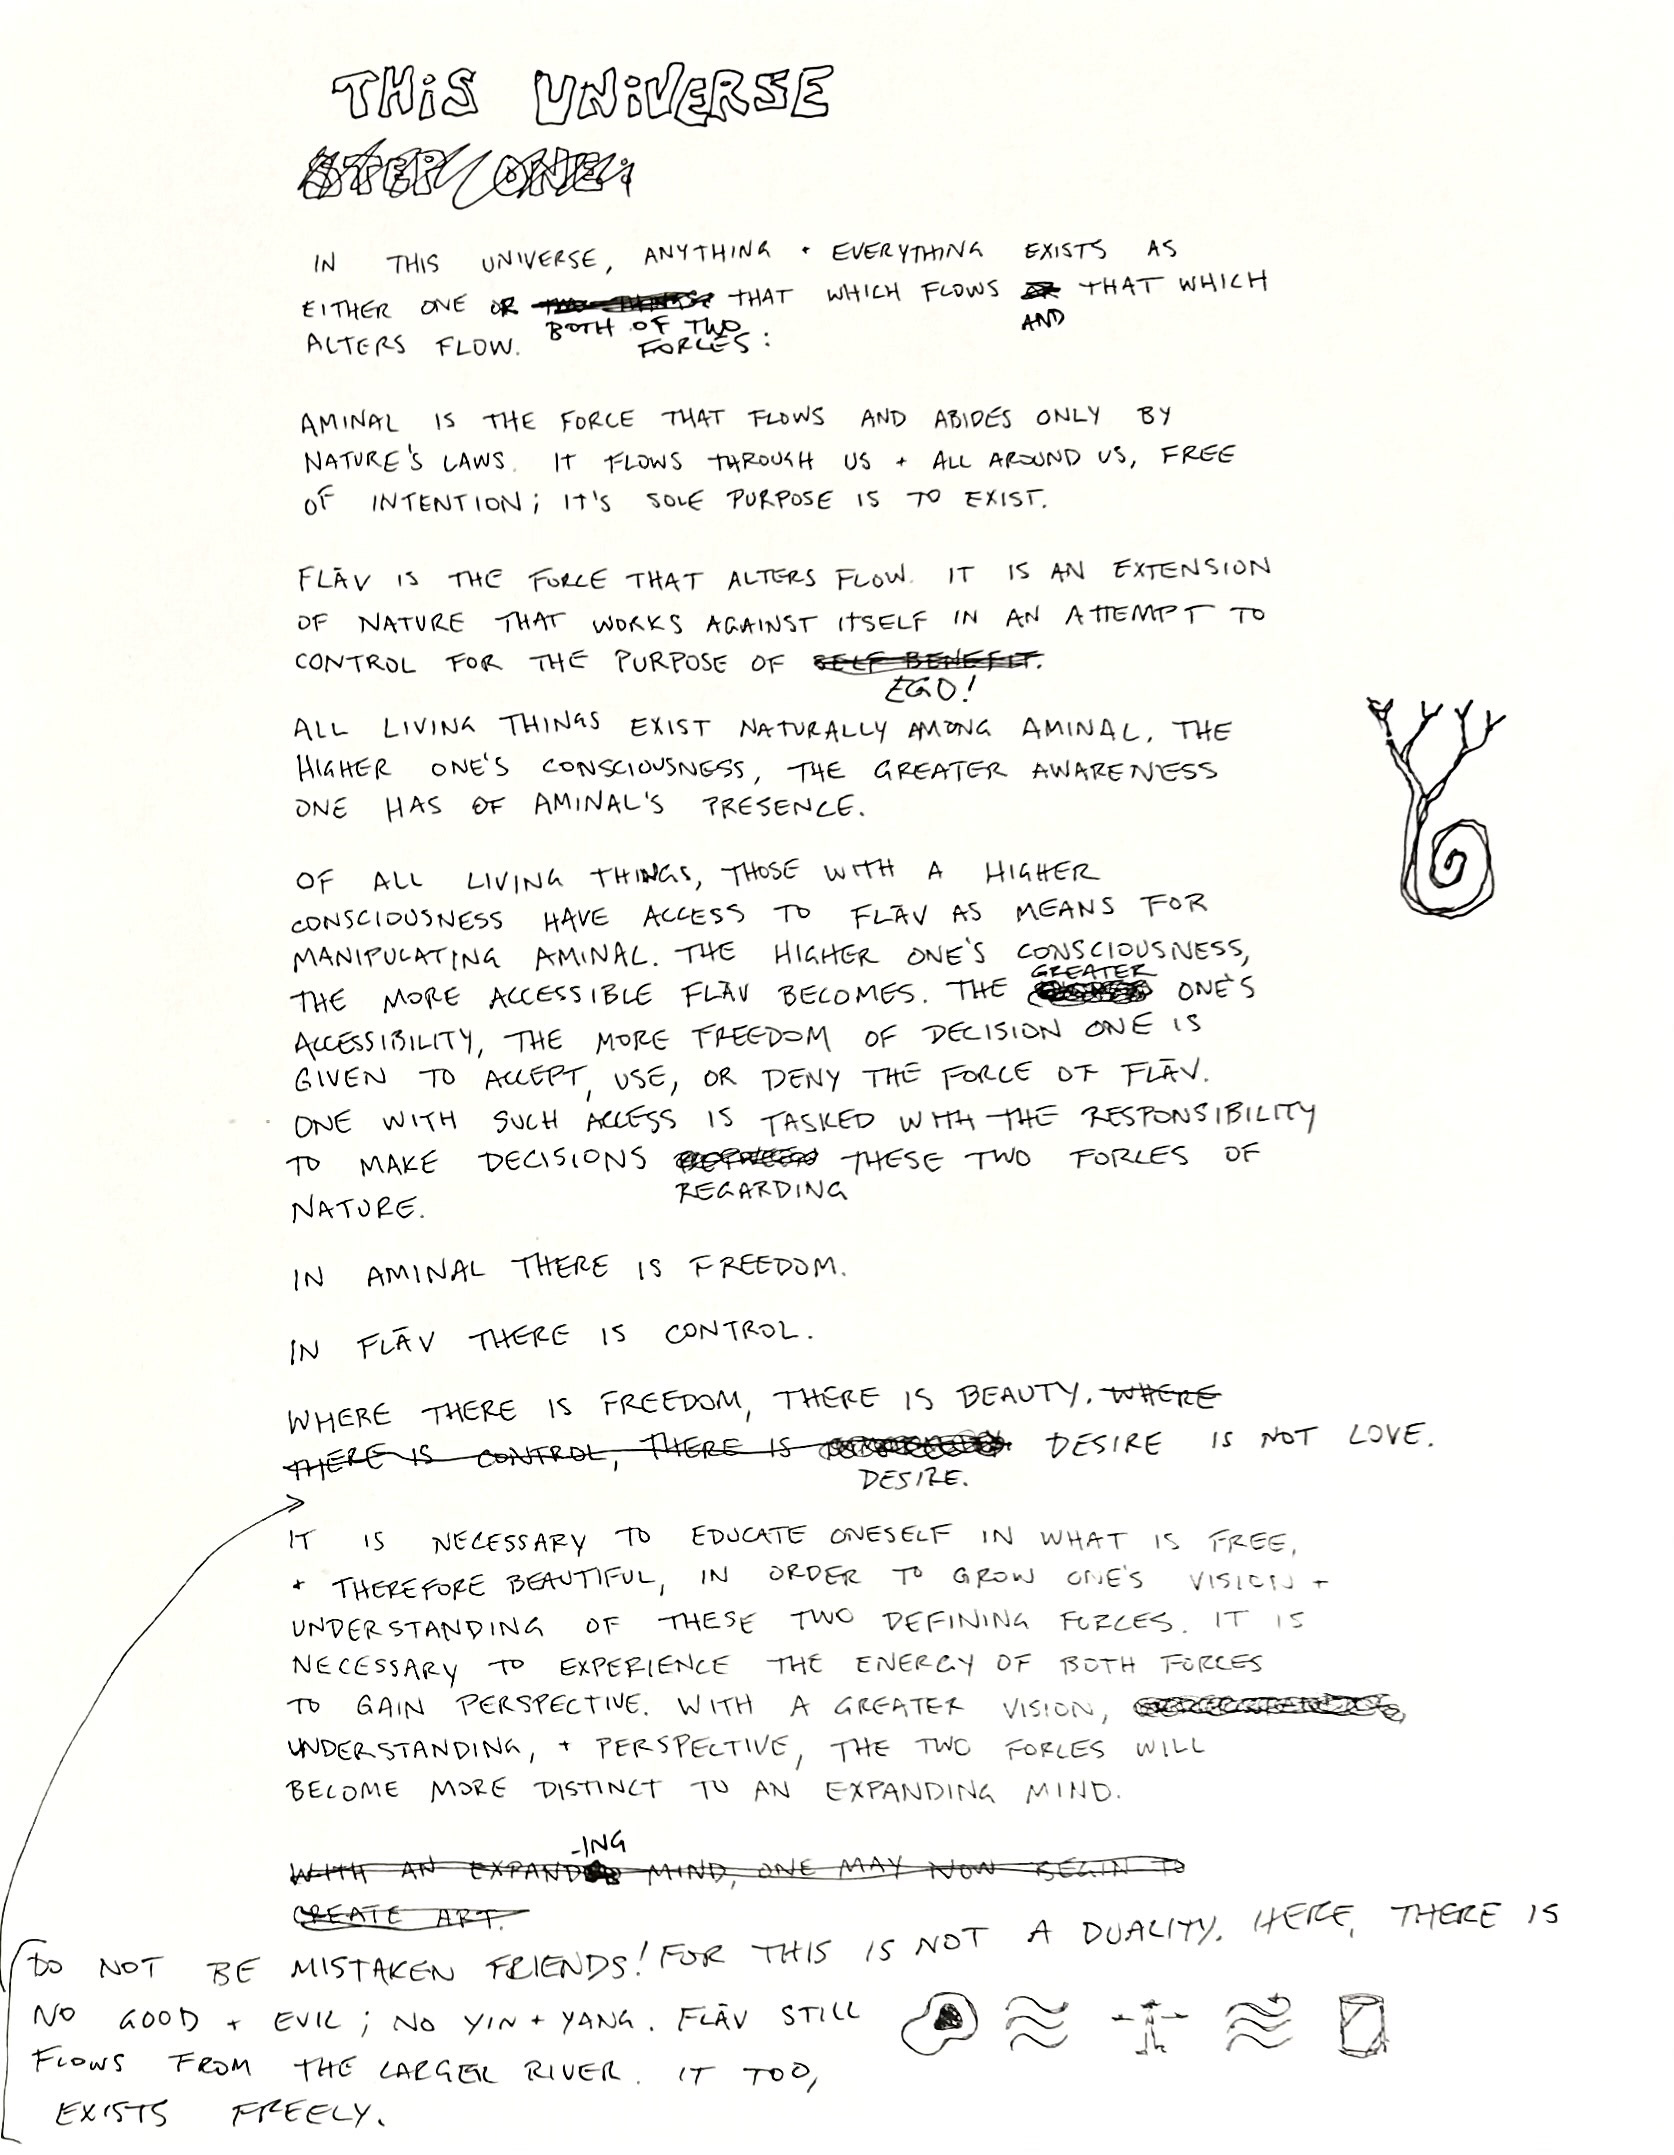 THIS UNIVERSE
STEP ONE:
IN THIS UNIVERSE, ANYTHING + EVERYTHING EXISTS AS
EITHER ONE OR TWO THINGS: THAT WHICH FLOWS OR THAT WHICH
BOTH OF TWO AND
ALTERS FLOW. FORCES:
AMINAL IS THE FORCE THAT FLOWS AND ABIDES ONLY BY
NATURE'S LAWS. IT FLOWS THROUGH US + ALL AROUND US, FREE
OF INTENTION; IT'S SOLE PURPOSE IS TO EXIST.
FLĀV IS THE FORCE THAT ALTERS FLOW. IT IS AN EXTENSION
OF NATURE THAT WORKS AGAINST ITSELF IN AN ATTEMPT TO
CONTROL FOR THE PURPOSE OF SELF BENEFIT.
EGO!
ALL LIVING THINGS EXIST NATURALLY AMONG AMINAL. THE
HIGHER ONE'S CONSCIOUSNESS, THE GREATER AWARENESS
ONE HAS OF AMINAL'S PRESENCE.
OF ALL LIVING THINGS, THOSE WITH A HIGHER
CONSCIOUSNESS HAVE ACCESS TO FLĀV AS MEANS FOR
MANIPULATING AMINAL. THE HIGHER ONE'S CONSCIOUSNESS,
GREATER
THE MORE ACCESSIBLE FLĀV BECOMES. THE ONE'S
ACCESSIBILITY, THE MORE FREEDOM OF DECISION ONE IS
GIVEN TO ACCEPT, USE, OR DENY THE FORCE OF FLĀV.
ONE WITH SUCH ACCESS IS TASKED WITH THE RESPONSIBILITY
TO MAKE DECISIONS THESE TWO FORCES OF
REGARDING
NATURE.
IN AMINAL THERE IS FREEDOM.
IN FLĀV THERE IS CONTROL.
WHERE THERE IS FREEDOM, THERE IS BEAUTY. WHERE
THERE IS CONTROL, THERE IS DESIRE IS NOT LOVE.
DESIRE.
IT IS NECESSARY TO EDUCATE ONESELF IN WHAT IS FREE,
+ THEREFORE BEAUTIFUL, IN ORDER TO GROW ONE'S VISION +
UNDERSTANDING OF THESE TWO DEFINING FORCES. IT IS
NECESSARY TO EXPERIENCE THE ENERGY OF BOTH FORCES
TO GAIN PERSPECTIVE. WITH A GREATER VISION,
UNDERSTANDING, + PERSPECTIVE, THE TWO FORCES WILL
BECOME MORE DISTINCT TO AN EXPANDING MIND.
-ING
WITH AN EXPAND MIND, ONE MAY NOW BEGIN TO
CREATE ART.
DO NOT BE MISTAKEN FRIENDS! FOR THIS IS NOT A DUALITY. HERE, THERE IS
NO GOOD + EVIL; NO YIN + YANG. FLĀV STILL
FLOWS FROM THE LARGER RIVER. IT TOO,
EXISTS FREELY.